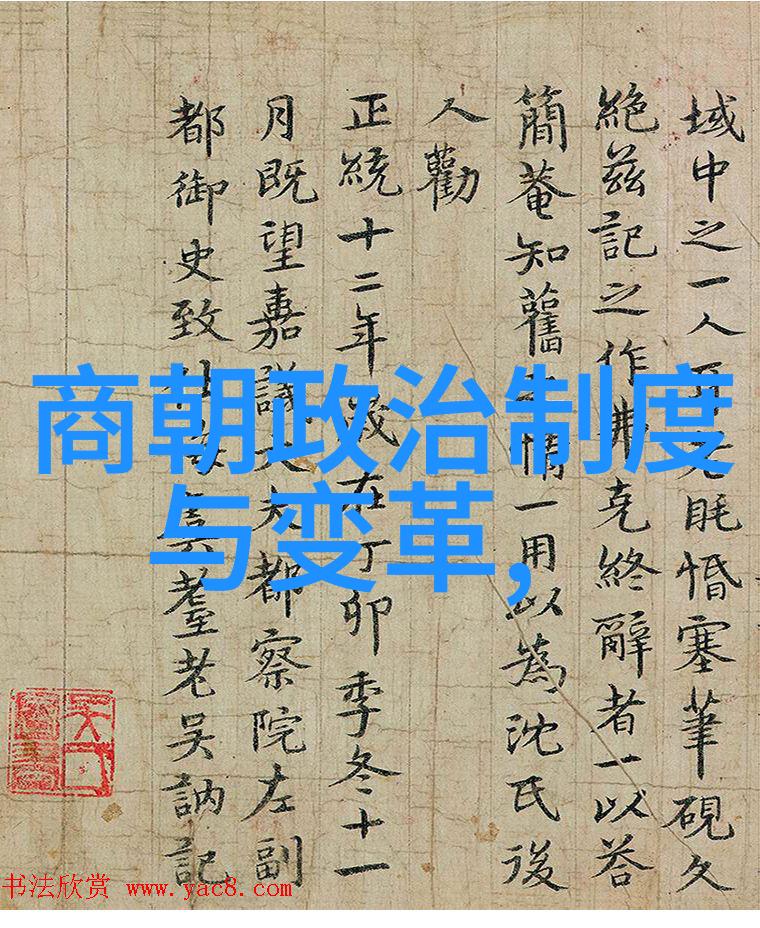 域中之一人耳老眊惛塞筆硯久
絶兹記之作弗克終辭者一以荅
簡菴知舊之情一用以為沈氏後
人勸
正統十二年歲在丁卯季冬十一
月既望嘉議大夫都察院左副
都御史致仕海虞耋老吳訥記
商朝政治制度
与变革,
书法欣赏 www.yac8.com